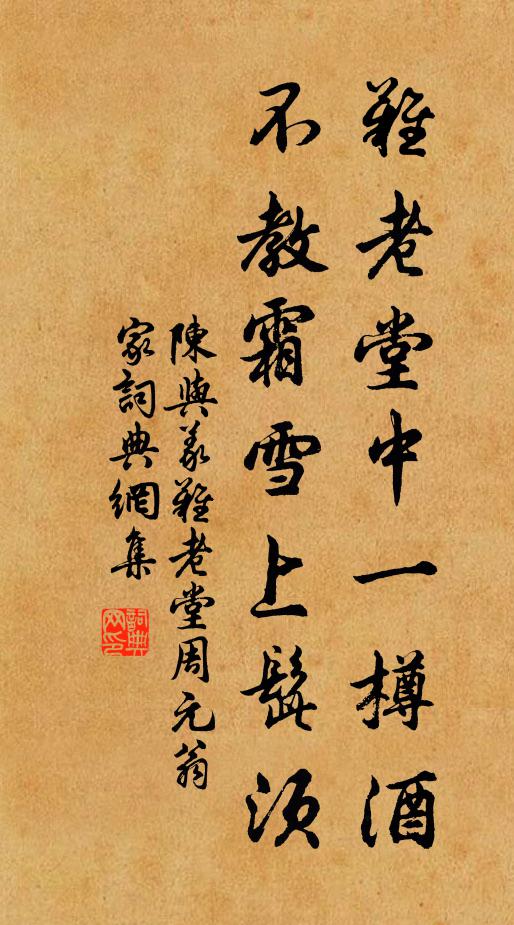 難老堂中一樽酒
不教霜雪上髭須
陳與義難老堂周元翁
家詞典網集
詞典網印